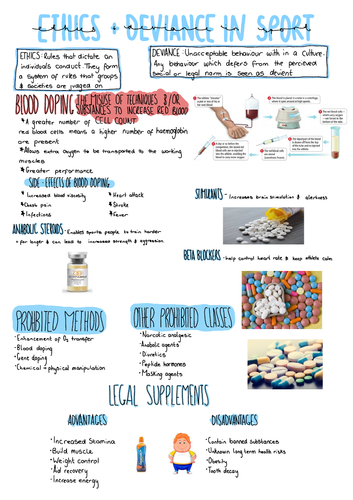 ETHICS + DEVIANCE IN SPORT
ETHICS: Rules that dictate an
individuals conduct. They form
a system of rules that groups
& societies are judged on
DEVIANCE: Unacceptable behaviour with in a culture.
Any behaviour which defers from the percieved
social or legal norm is seen as devient
BLOOD DOPING: THE MISUSE OF TECHNIQUES &/OR
SUBSTANCES TO INCREASE RED BLOOD
CELL COUNT
• A greater number of
red blood cells means a higher number of haemoglobin
are present
• Allows extra oxygen to be transported to the working
muscles
• Greater performance
SIDE-EFFECTS OF BLOOD DOPING
• Increased blood viscosity
• Chest pain
• Infections
• Heart attack
• Stroke
• Fever
ANABOLIC STEROIDS - Enables sports people to train harder
+ for longer & can lead to increased strength & aggression
STIMULANTS - Increases brain stimulation & alertness
BETA BLOCKERS - help control heart rate & keep athlete calm
PROHIBITED METHODS
• Enhancement of O₂ transfer
• Blood doping
• Gene doping
• Chemical + physical manipulation
OTHER PROHIBITED CLASSES
• Narcotic analgesic
• Anabolic agents
• Diuretics
• Peptide hormones
• Masking agents
LEGAL SUPPLEMENTS
ADVANTAGES
• Increased Stamina
• Build muscle
• Weight control
• Aid recovery
• Increase energy
DISADVANTAGES
• Contain banned substances
• Unknown long term health risks
• Obesity
• Tooth decay